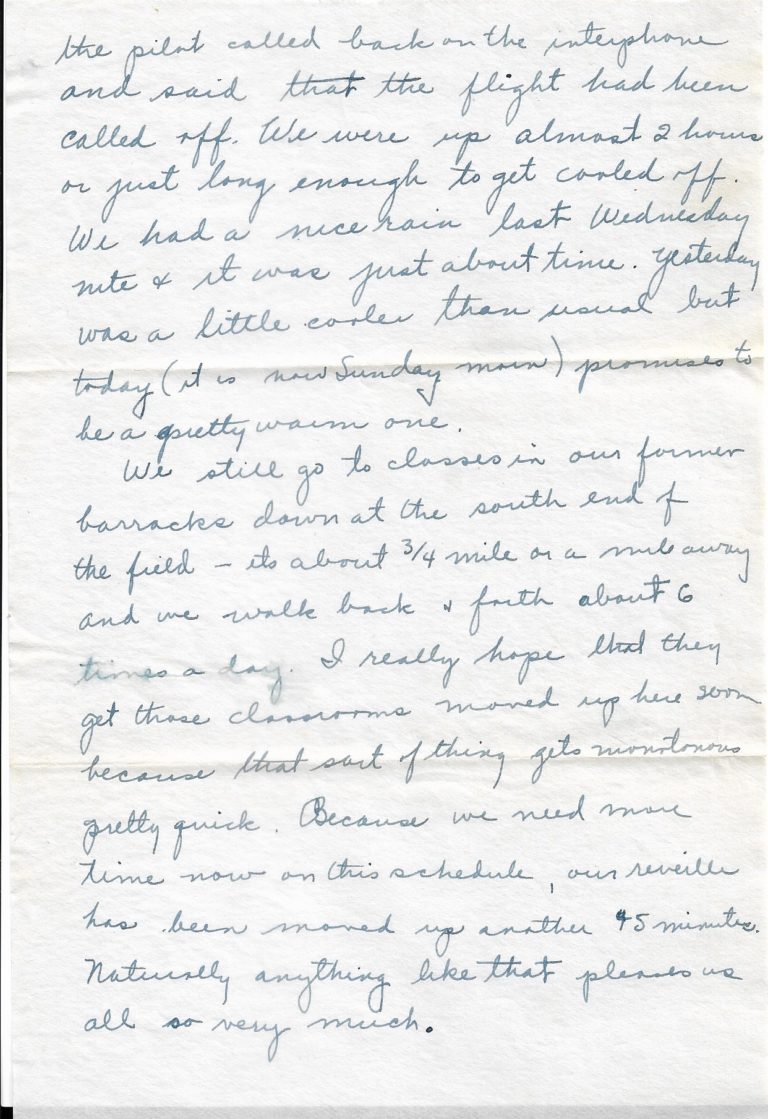 the pilot called back on the interphone
and said that the flight had been
called off. We were up almost 2 hours
or just long enough to get cooled off.
We had a nice rain last Wednesday
nite & it was just about time. Yesterday
was a little cooler than usual but
today (it is now Sunday morn) promises to
be a pretty warm one.
We still go to classes in our former
barracks down at the south end of
the field - its about 3/4 mile or a mile away
and we walk back & forth about 6
times a day. I really hope that they
get those classrooms moved up here soon
because that sort of thing gets monotonous
pretty quick. Because we need more
time now on this schedule, our reveille
has been moved up another 45 minutes.
Naturally anything like that pleases us
all so very much.